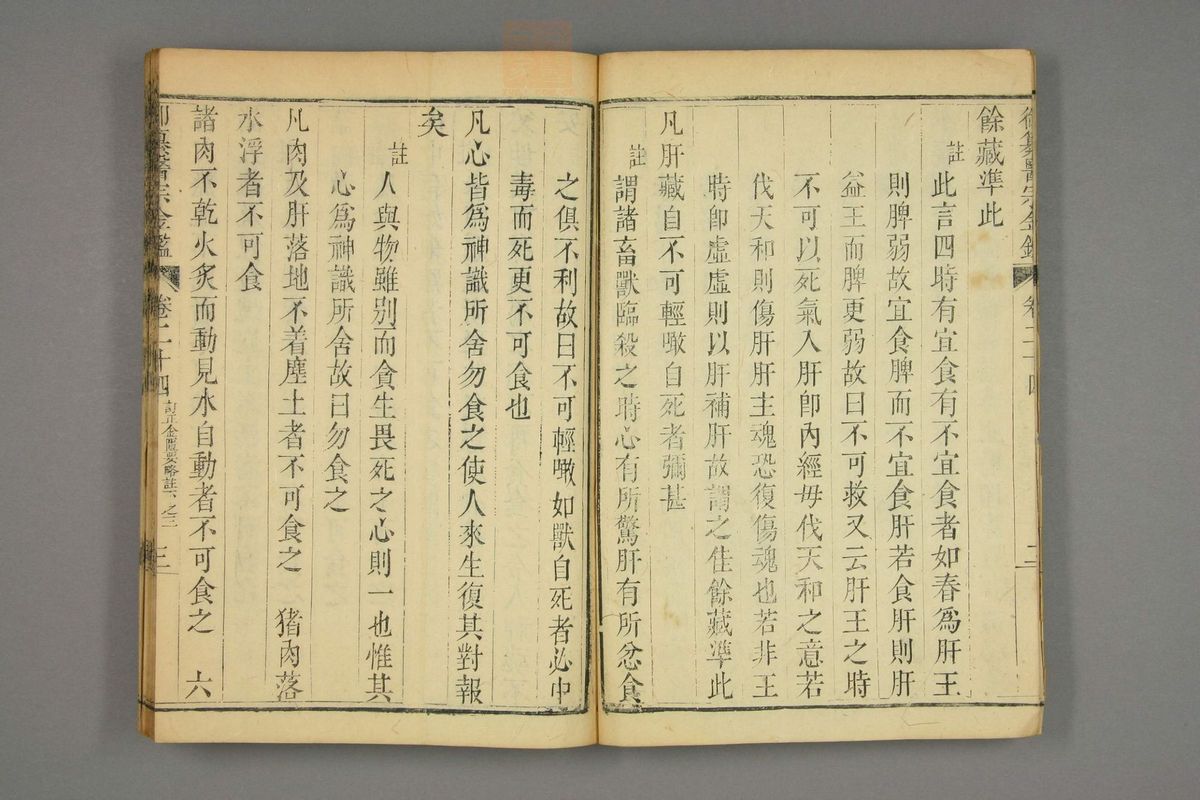 御纂醫宗金鑑 卷二十四 二
餘藏準此
註 此言四時有宜食有不宜食者如春爲肝王
則脾弱故宜食脾而不宜食肝若食肝則肝
益王而脾更弱故曰不可救又云肝王之時
不可以死氣入肝卽內經毋伐天和之意若
伐天和則傷肝肝主魂恐復傷魂也若非王
時卽虛虛則以肝補肝故謂之佳餘藏準此
凡肝藏自不可輕噉自死者彌甚
註 謂諸畜獸臨殺之時心有所驚肝有所忿食
之俱不利故曰不可輕噉如獸自死者必中
毒而死更不可食也
凡心皆爲神識所舍勿食之使人來生復其對報
矣
註 人與物雖別而貪生畏死之心則一也惟其
心爲神識所舍故曰勿食之
凡肉及肝落地不着塵土者不可食之 猪肉落
水浮者不可食
諸肉不乾火炙而動見水自動者不可食之 六
御纂醫宗金鑑 卷二十四 訂正金匱要略註下之三 三